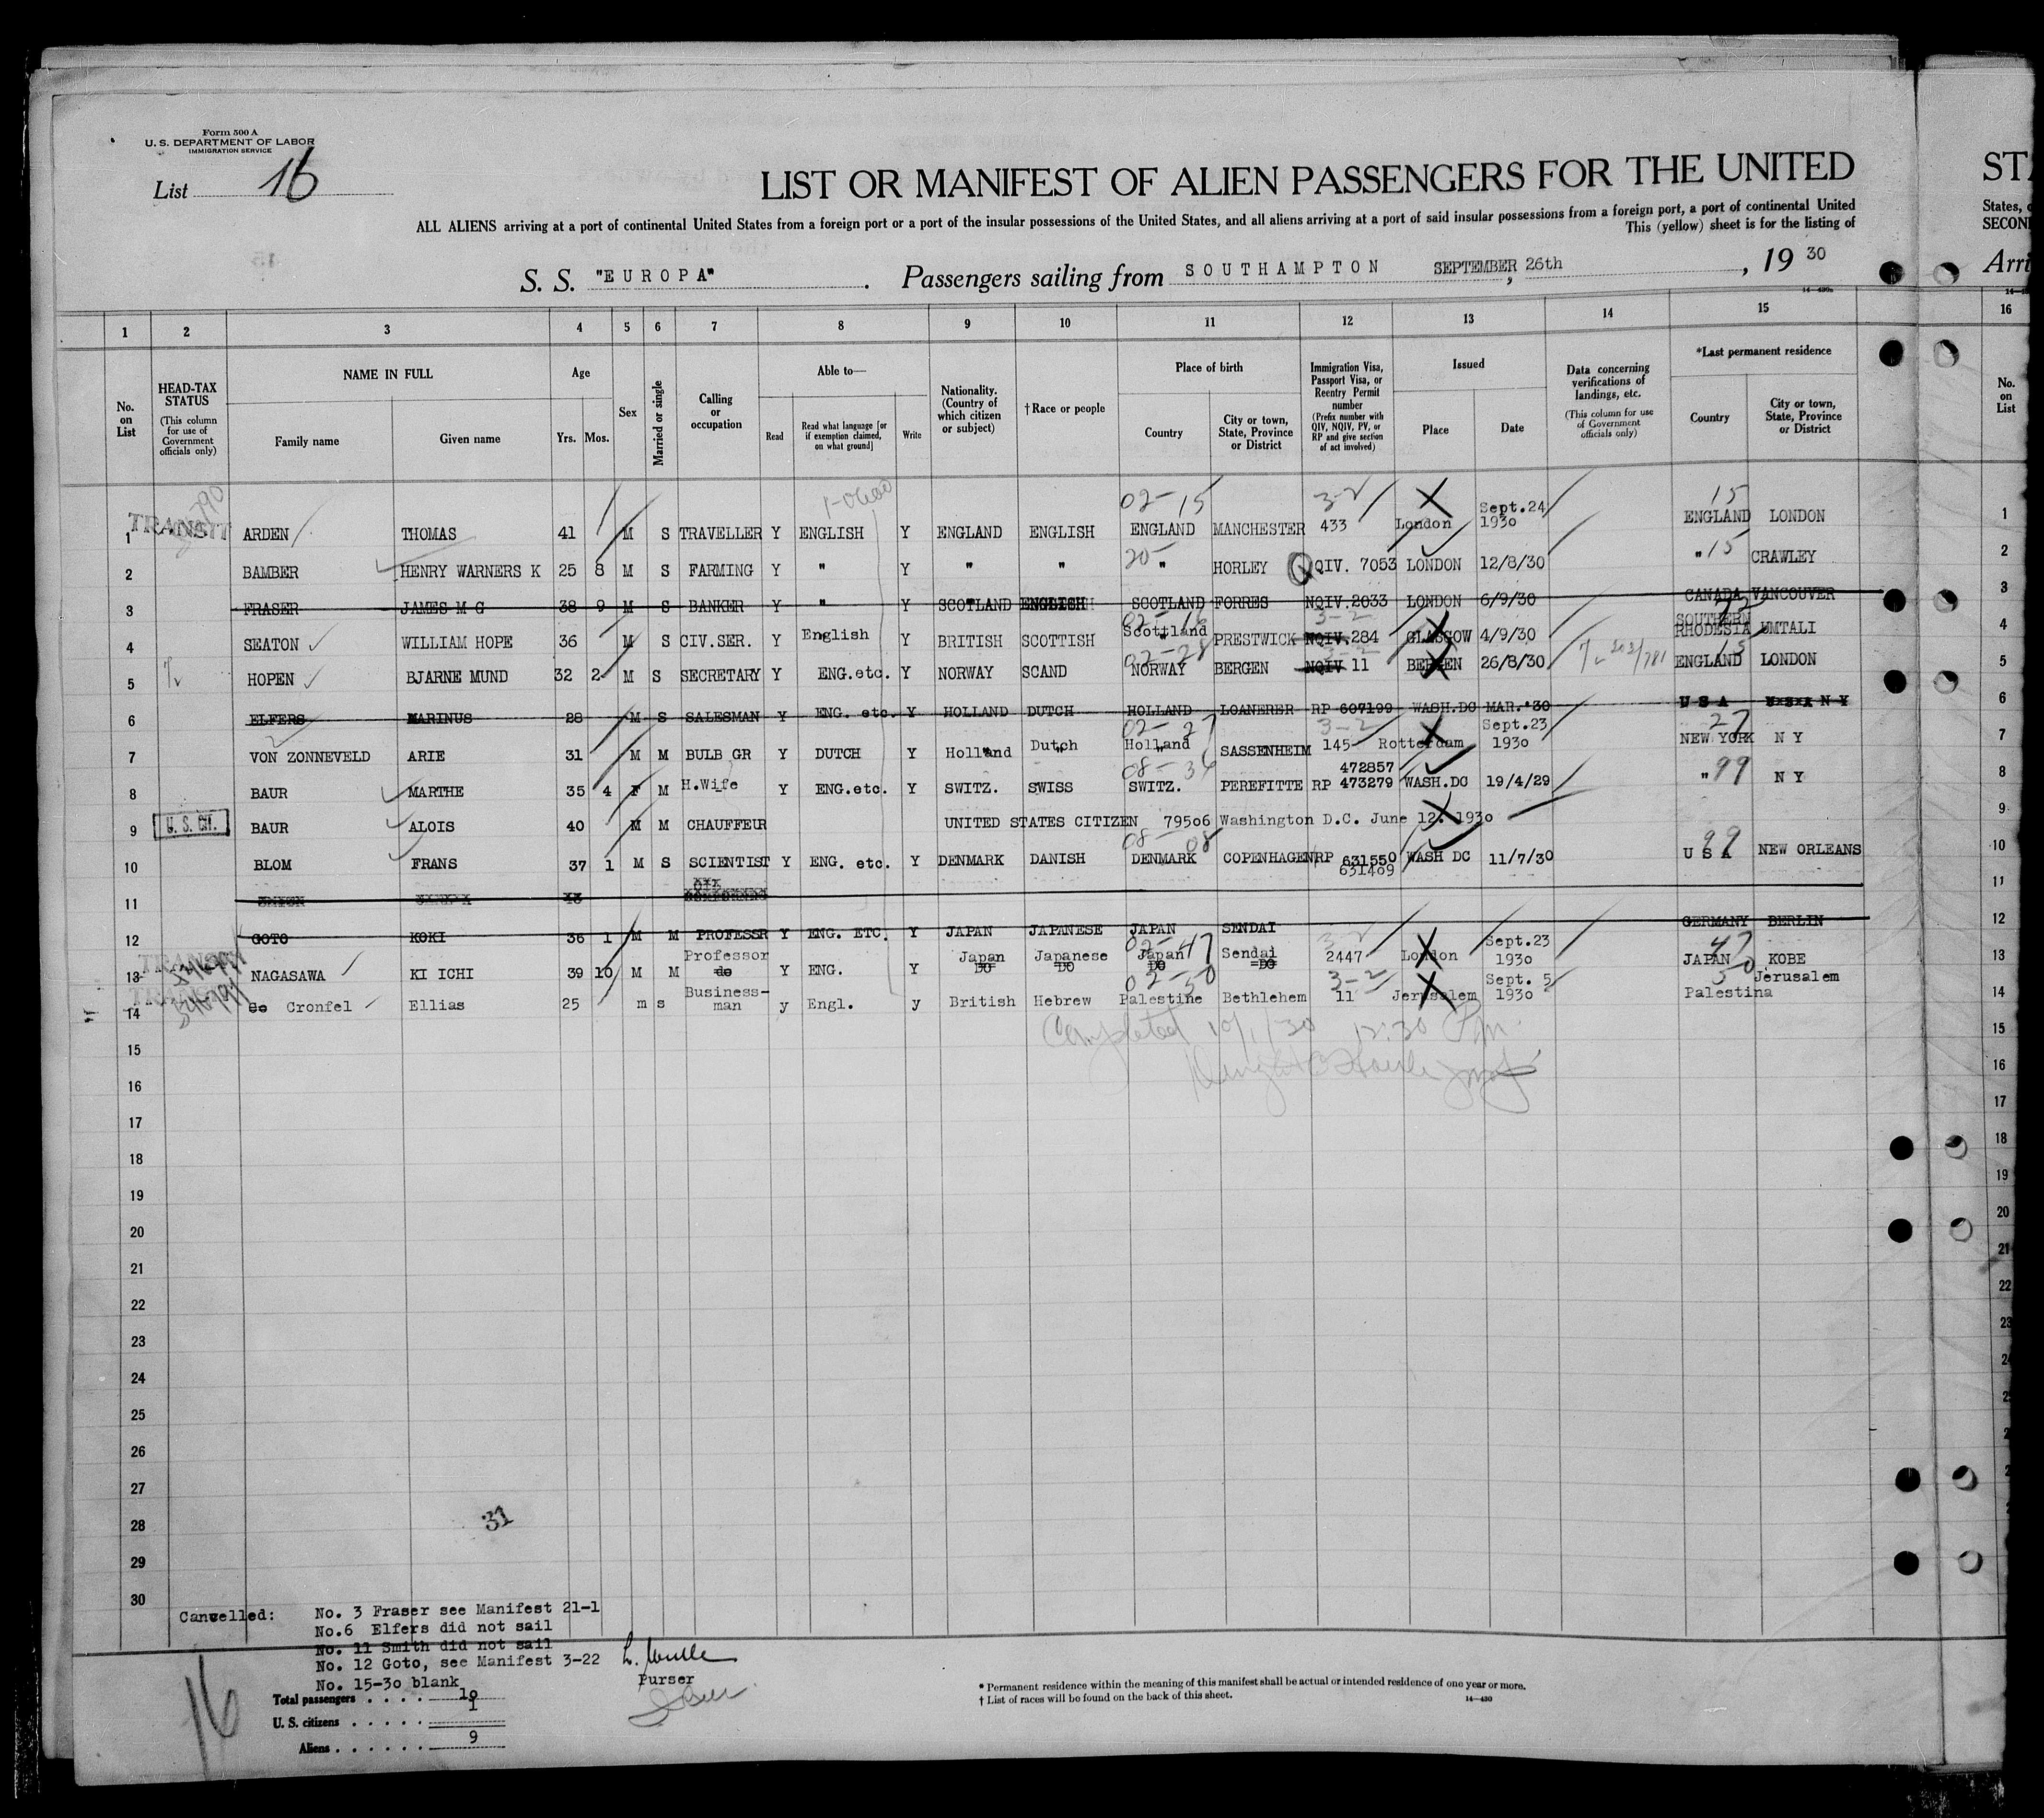 Form 500 A
U. S. DEPARTMENT OF LABOR
IMMIGRATION SERVICE
List 16
LIST OR MANIFEST OF ALIEN PASSENGERS FOR THE UNITED
STA
ALL ALIENS arriving at a port of continental United States from a foreign port or a port of the insular possessions of the United States, and all aliens arriving at a port of said insular possessions from a foreign port, a port of continental United
States, o
This (yellow) sheet is for the listing of
SECON
S. S. "EUROPA" . Passengers sailing from SOUTHAMPTON SEPTEMBER 26th , 19 30
Arri
1 2 3 4 5 6 7 8 9 10 11 12 13 14 15 16
No. on List
HEAD-TAX STATUS (This column for use of Government officials only)
NAME IN FULL
Family name Given name
Age
Yrs. Mos.
Sex
Married or single
Calling or occupation
Able to—
Read
Read what language [or if exemption claimed, on what ground]
Write
Nationality. (Country of which citizen or subject)
† Race or people
Place of birth
Country
City or town, State, Province or District
Immigration Visa, Passport Visa, or Reentry Permit number (Prefix number with QIV, NQIV, PV, or RP and give section of act involved)
Issued
Place Date
Data concerning verifications of landings, etc. (This column for use of Government officials only)
*Last permanent residence
Country
City or town, State, Province or District
No. on List
02-15 3-2 15
1 TRANSIT ARDEN THOMAS 41 M S TRAVELLER Y ENGLISH Y ENGLAND ENGLISH ENGLAND MANCHESTER 433 London Sept.24 1930 ENGLAND LONDON 1
2 BAMBER HENRY WARNERS K 25 8 M S FARMING Y " Y " " " HORLEY QIV. 7053 LONDON 12/8/30 " 15 CRAWLEY 2
3 FRASER JAMES M G 38 9 M S BANKER Y " Y SCOTLAND ENGLISH SCOTLAND FORRES NQIV.2033 LONDON 6/9/30 CANADA VANCOUVER 3
4 SEATON WILLIAM HOPE 36 M S CIV.SER. Y English Y BRITISH SCOTTISH Scottland PRESTWICK NQIV.284 GLASGOW 4/9/30 SOUTHERN RHODESIA UMTALI 4
5 HOPEN BJARNE MUND 32 2 M S SECRETARY Y ENG.etc. Y NORWAY SCAND NORWAY BERGEN NQIV 11 BERGEN 26/8/30 ENGLAND LONDON 5
6 ELFERS MARINUS 28 M S SALESMAN Y ENG. etc. Y HOLLAND DUTCH HOLLAND LOANERER RP 607199 WASH.DC MAR.'30 U S A N Y 6
02-27 3-2 27
7 VON ZONNEVELD ARIE 31 M M BULB GR Y DUTCH Y Holland Dutch Holland SASSENHEIM 145 Rotterdam Sept.23 1930 NEW YORK N Y 7
8 BAUR MARTHE 35 4 F M H.Wife Y ENG.etc. Y SWITZ. SWISS SWITZ. PEREFITTE RP 472857 473279 WASH.DC 19/4/29 " 99 N Y 8
9 U. S. CIT. BAUR ALOIS 40 M M CHAUFFEUR UNITED STATES CITIZEN 79506 Washington D.C. June 12. 1930 9
08 08 99
10 BLOM FRANS 37 1 M S SCIENTIST Y ENG. etc. Y DENMARK DANISH DENMARK COPENHAGEN RP 631550 631409 WASH DC 11/7/30 U S A NEW ORLEANS 10
11 11
12 GOTO KOKI 36 1 M M PROFESSR Y ENG. ETC. Y JAPAN JAPANESE JAPAN SENDAI GERMANY BERLIN 12
02-47 3-2 47
13 TRANSIT NAGASAWA KI ICHI 39 10 M M Professor do Y ENG. Y Japan DO Japanese DO Japan DO Sendai DO 2447 London Sept.23 1930 JAPAN KOBE 13
02-50 3-2 50
14 TRANSIT Cronfel Ellias 25 m s Business-man y Engl. y British Hebrew Palestine Bethlehem 11 Jerusalem Sept. 5 1930 Palestina Jerusalem 14
Completed 10/1/30 12:30 Pm.
15 15
16 16
17 17
18 18
19 19
20 20
21 21
22 22
23 23
24
25
26
27
28
29
30
31
Cancelled: No. 3 Fraser see Manifest 21-1
No.6 Elfers did not sail
No. 11 Smith did not sail
No. 12 Goto, see Manifest 3-22
No. 15-30 blank
Purser
16
Total passengers . . . . 10
U. S. citizens . . . . . 1
Aliens . . . . . . 9
* Permanent residence within the meaning of this manifest shall be actual or intended residence of one year or more.
† List of races will be found on the back of this sheet.
14—430